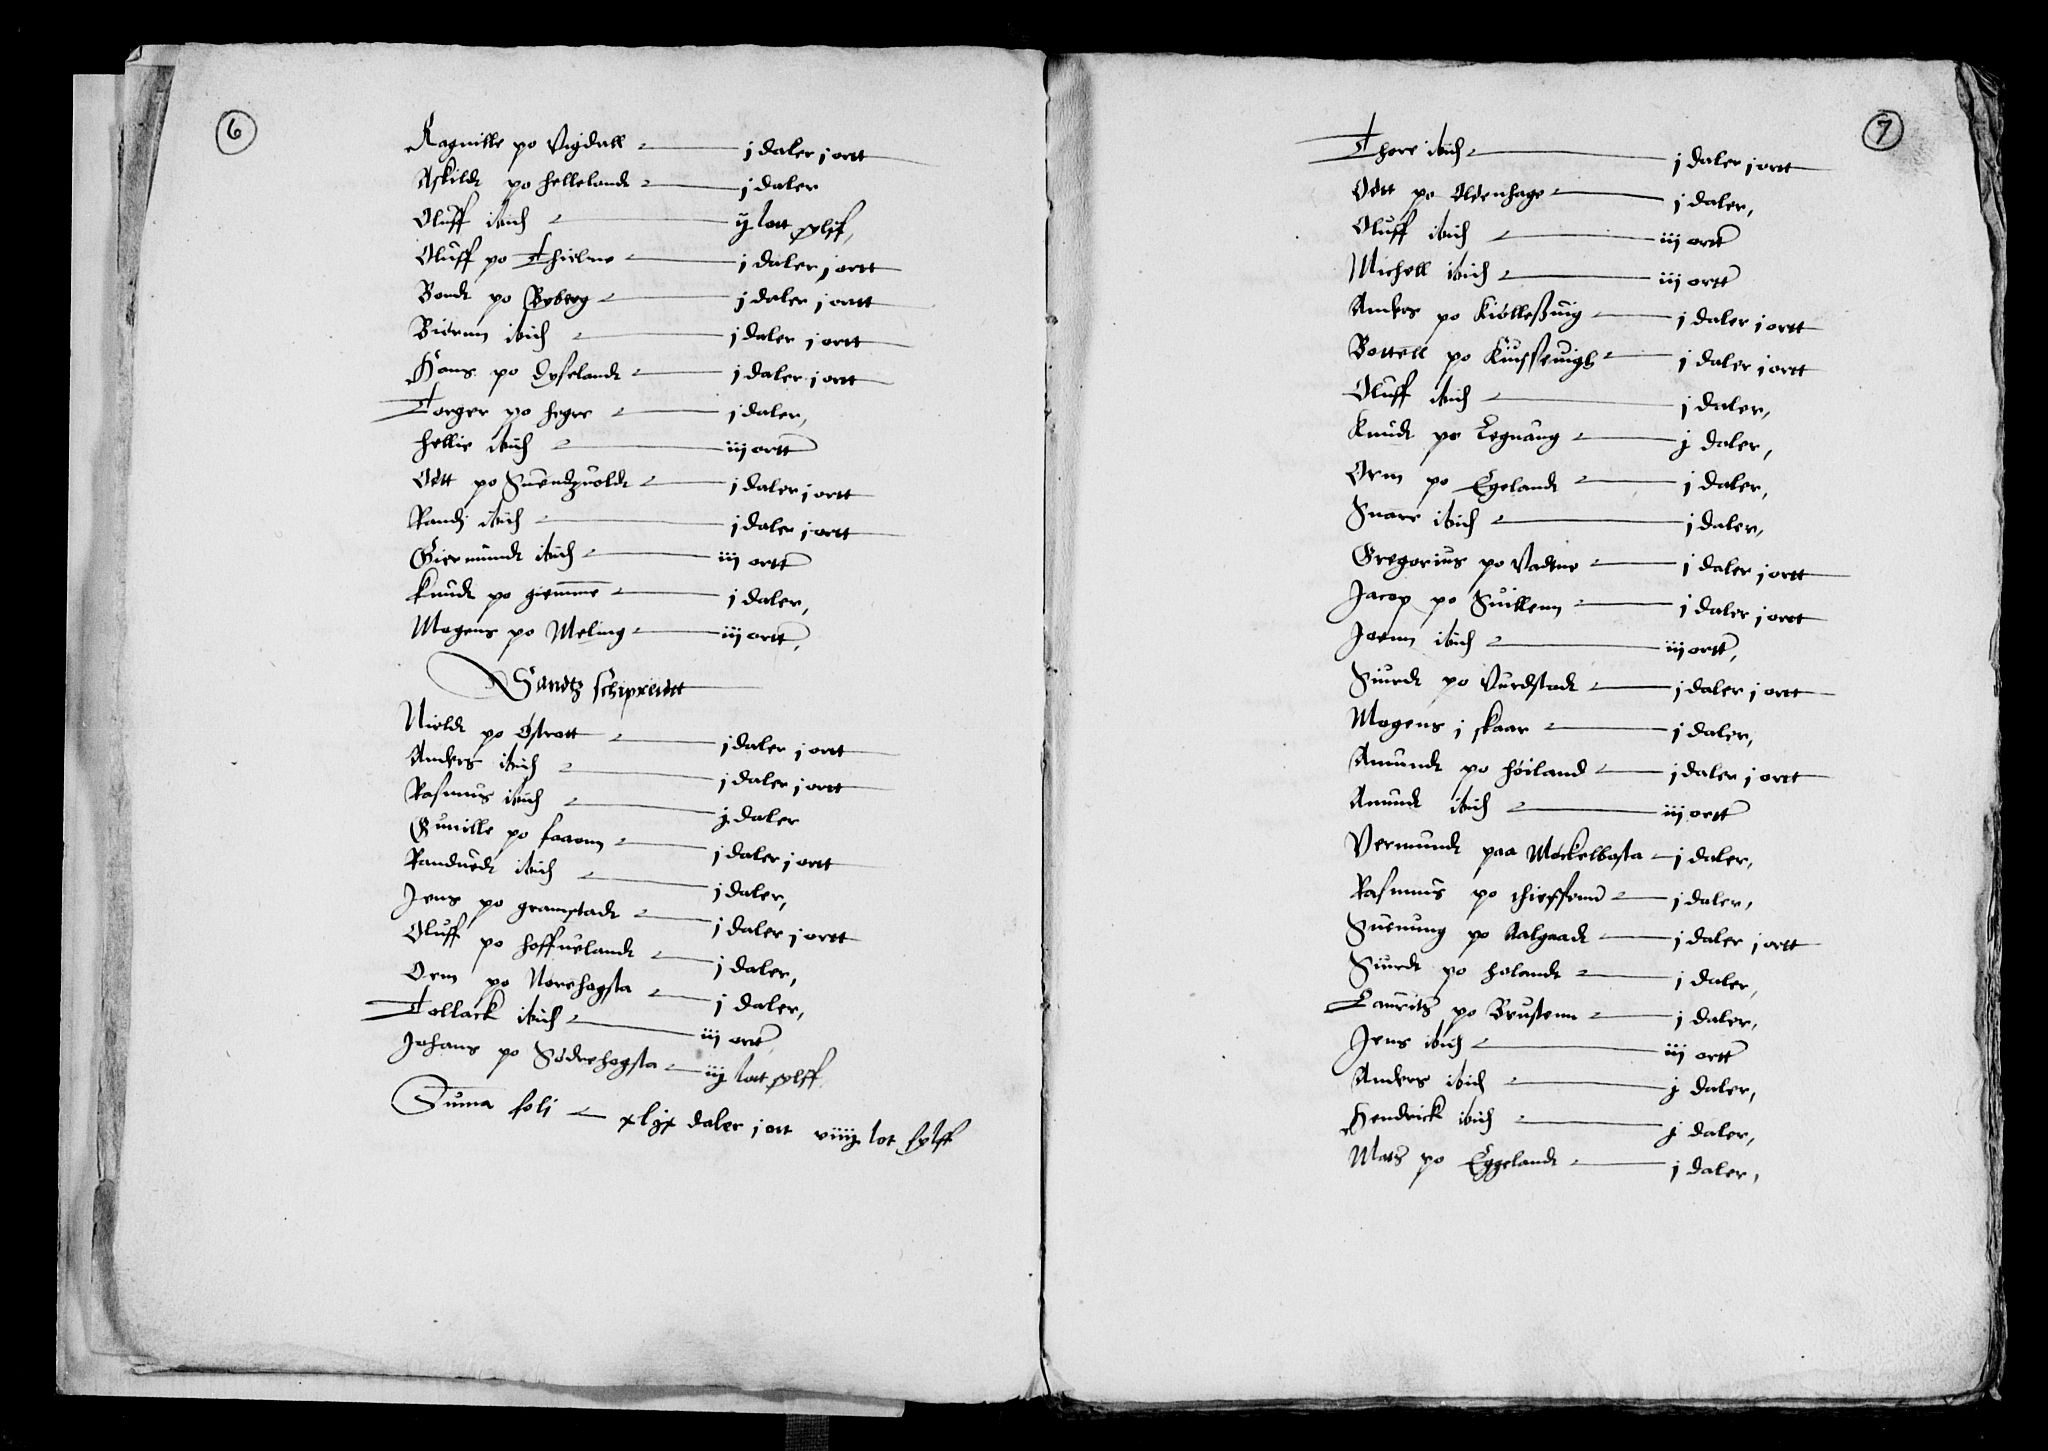 6
Ragnille po Vigdall j daler j ortt
Askildt po hellelandt j daler
Oluff ibid ij lott sølff,
Oluff po Thielne j daler j ortt
Bondt po Byberg j daler j ortt
Biørnn ibid j daler j ortt
Hans po dyselandt j daler j ortt
Torger po hegre j daler,
hellie ibid iij ortt
Odtt po Suendzuoldt j daler j ortt
Randj ibid j daler j ortt
Giermundt ibid iij ortt
knudt po giemme j daler,
Mogens po Meling iij ortt,
Sandtz schipreidtt
Nieldt po Østrott j daler j ortt
Anders ibid j daler j ortt
Rasmus ibid j daler
Gunille po foaonn j daler j ortt
Randuedt ibid j daler,
Jens po gramstadt j daler j ortt
Oluff po hoffuelandt j daler,
Orm po Norehogsta j daler,
Tollack ibid iij ortt
Johans po Sødrehogsta iij lott sølff
Suma foli xlix daler j ort viiij lot sølff
7
Thore ibid j daler j ortt
Odtt po Oldenhage j daler,
Oluff ibid iij ortt
Michell ibid iij ortt
Anders po Kiølleßuig j daler j ortt
Bottell po Kuisseuigh j daler j ortt
Oluff ibid j daler,
Knudt po Legnang j daler,
Orm po Egelandt j daler,
Snare ibid j daler,
Gregorius po Vadtne j daler j ortt
Jacop po Suillenn j daler j ortt
Jonn ibid iij ortt,
Siurdt po Vurdstadt j daler j ortt
Mogens j skaar j daler,
Amundt po høiland j daler j ortt
Amundt ibid iij ortt
Vermundt paa Møckelbosta j daler,
Rasmus po thieffenn j daler,
Suenung po Aalgaadt j daler j ortt
Siurdt po holandt j daler,
Lauritz po Brustenn j daler,
Jens ibid iij ortt
Anders ibid j daler,
Hendrick ibid j daler,
Matz po Eggelandt j daler,